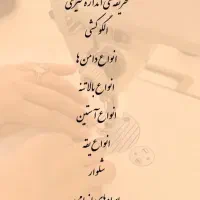 طریقه‌ی اندازه گیری
الگوکشی
انواع دامن‌ها
انواع بالاتنه
انواع آستین
انواع یقه
شلوار